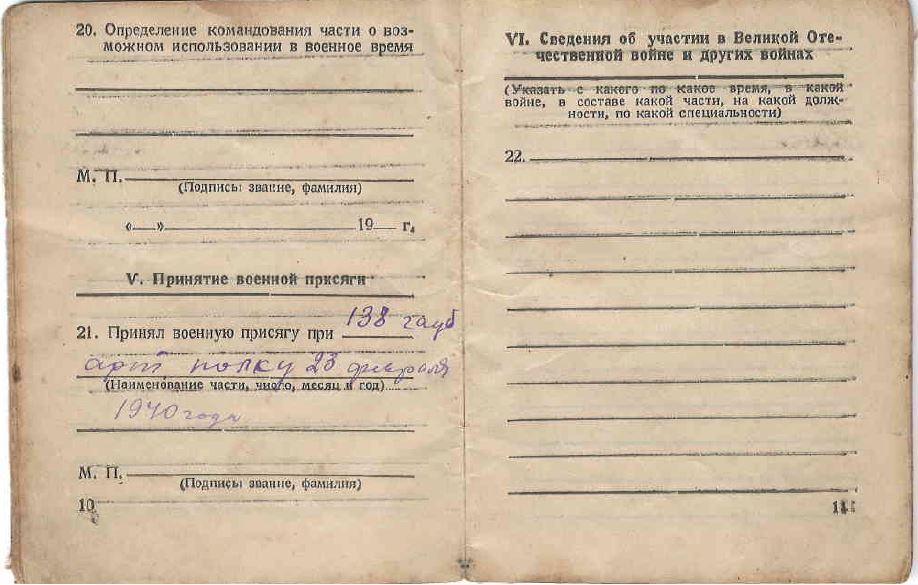 20. Определение командования части о воз-
можном использовании в военное время
М. П.
(Подпись: звание, фамилия)
« » 19 г.
V. Принятие военной присяги
21. Принял военную присягу при 138 гауб
арт полку 23 февраля
(Наименование части, число, месяц и год)
1940 года
М. П.
(Подпись: звание, фамилия)
10
VI. Сведения об участии в Великой Оте-
чественной войне и других войнах
(Указать с какого по какое время, в какой
войне, в составе какой части, на какой долж-
ности, по какой специальности)
22.
11